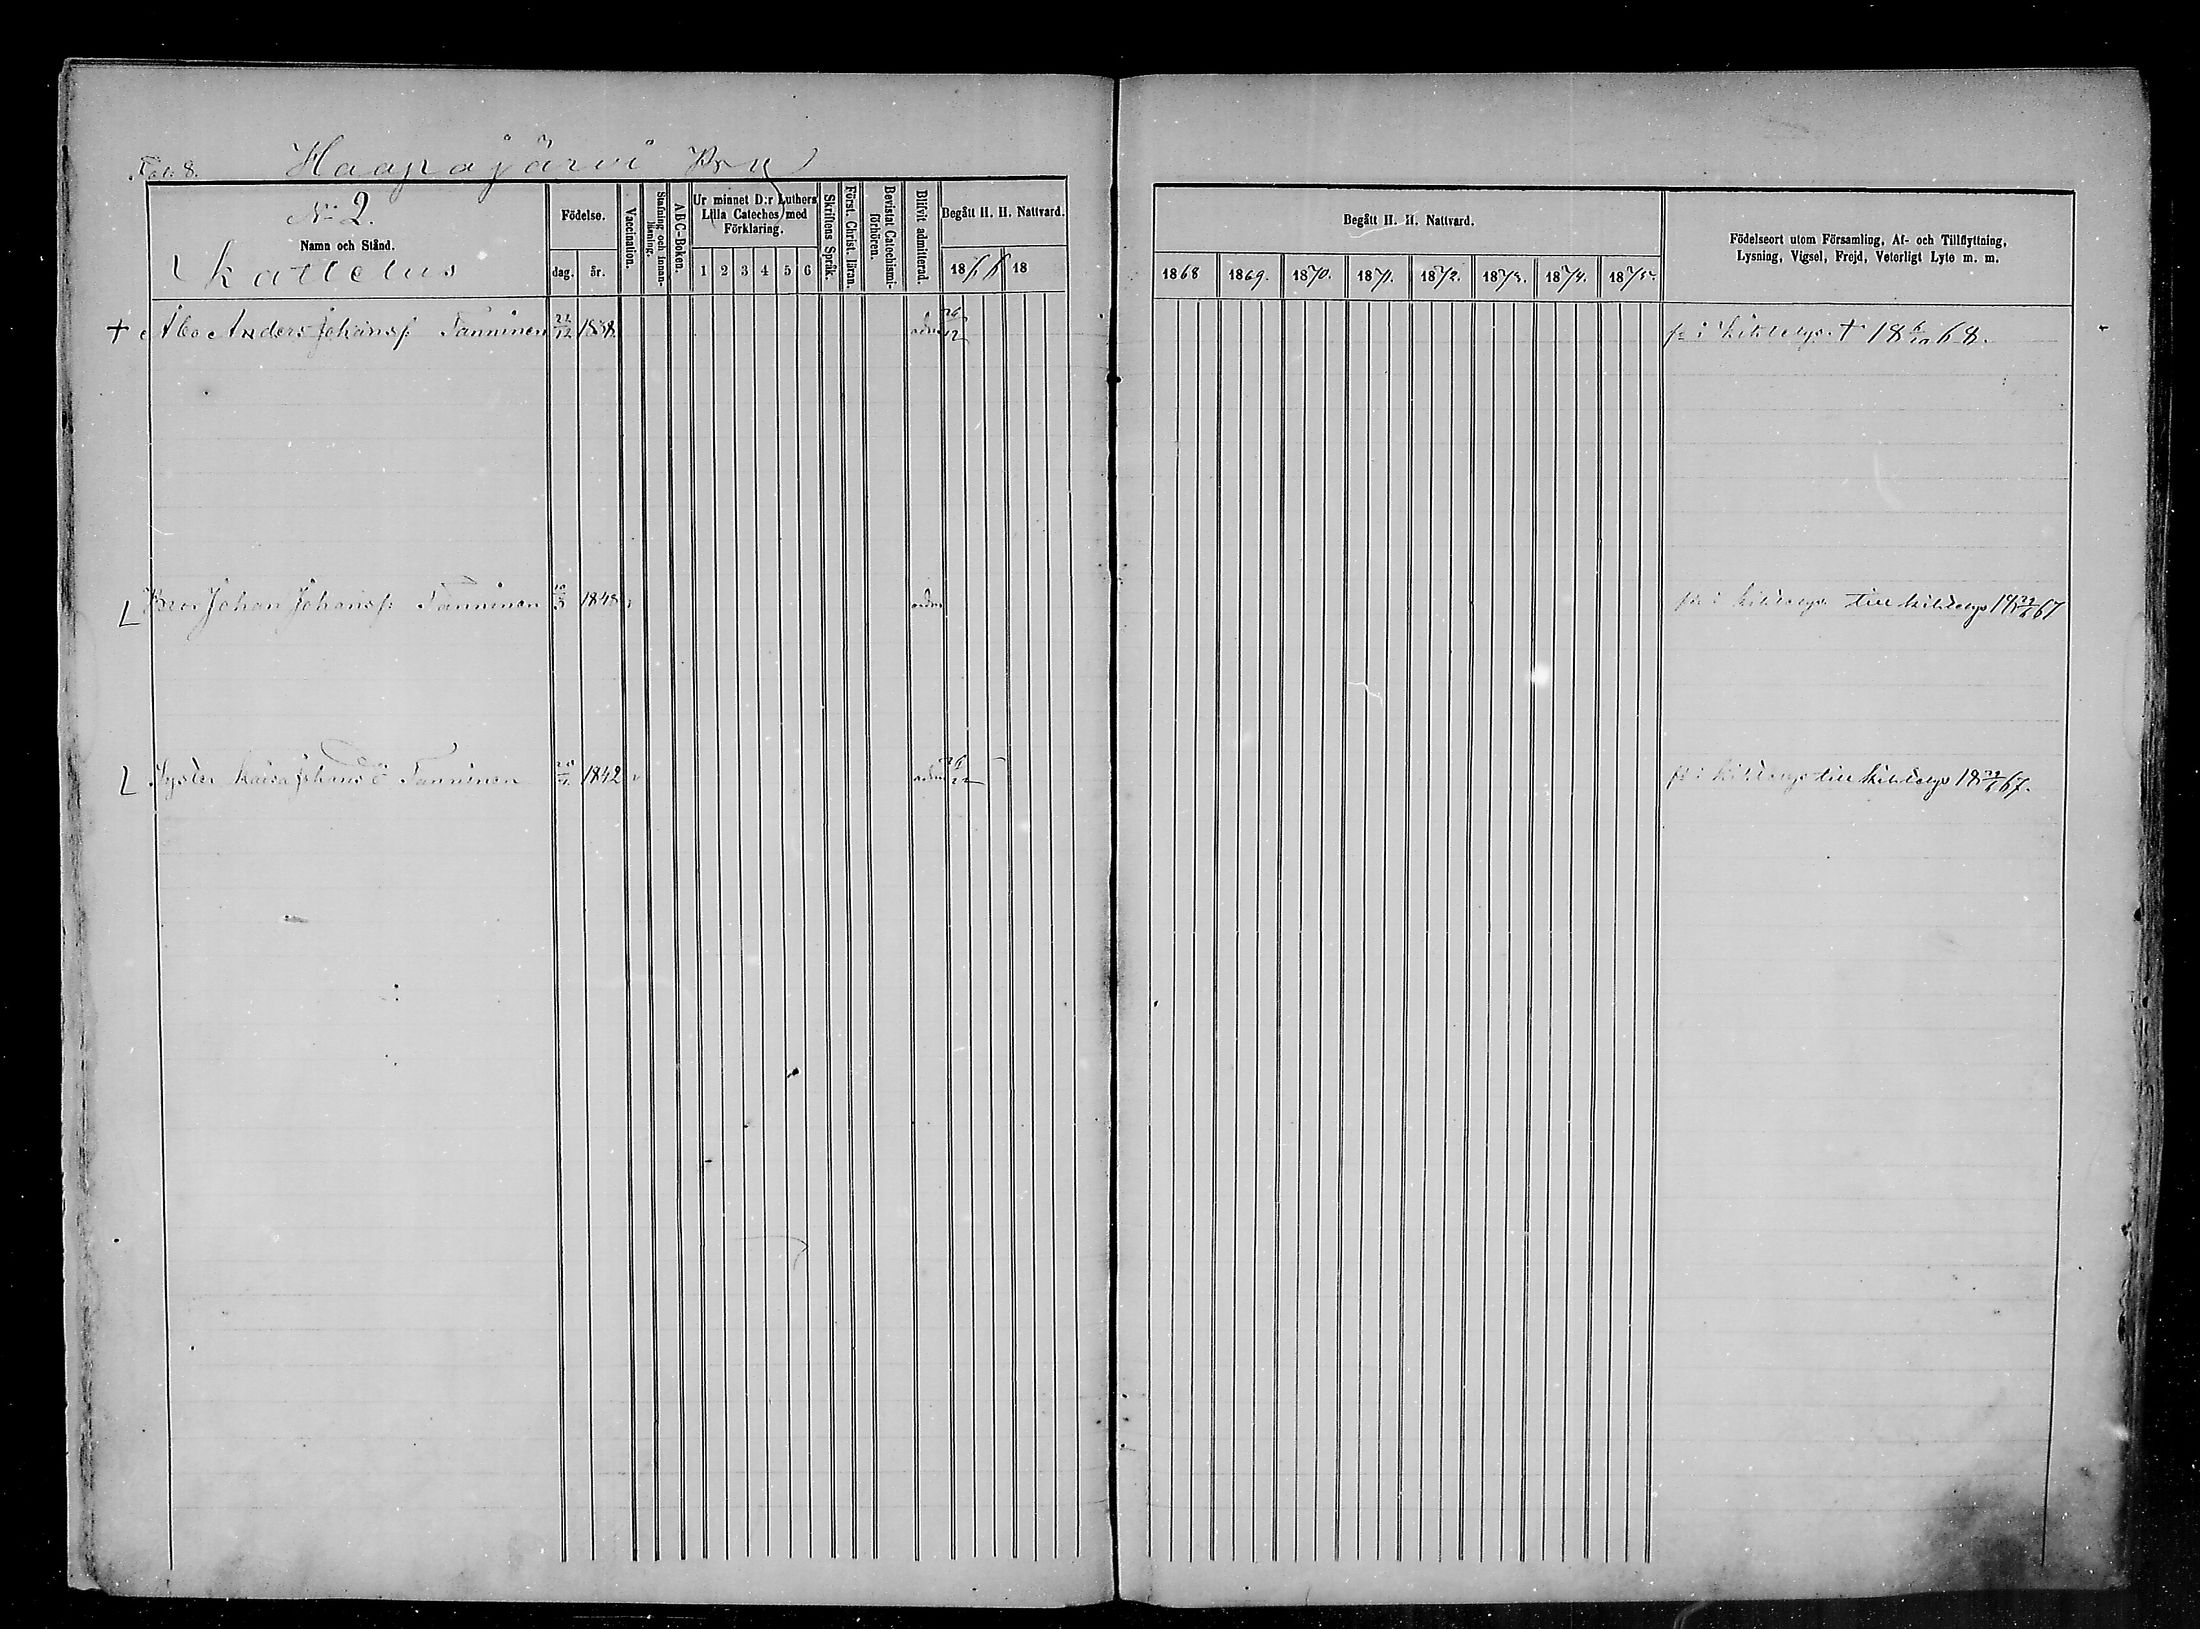 Fol: 8. Haapajärvi By
No 2.
Namn och Stånd.
Kattelus
Födelse.
dag. år.
Vaccination.
Stafning och innan-läsning.
ABC-Boken.
Ur minnet D:r Luthers Lilla Cateches med Förklaring.
1 2 3 4 5 6
Skriftens Språk.
Först. Christ. läran.
Bevistat Catechismi-förhören.
Blifvit admitterad.
Begått H. H. Nattvard.
1866 18
Begått H. H. Nattvard.
1868 1869. 1870. 1871. 1872. 1873. 1874. 1875.
Födelseort utom Församling, Af- och Tillflyttning,
Lysning, Vigsel, Frejd, Veterligt Lyte m. m.
+ Åbo Anders Johanss: Tanninen 22/12 1838. adm 26/12 i + 18 6/10 68.
Bror Johan Johanss: Tanninen 10/3 1848 v adm i till 18 22/6 67
Syster Kaisa Johans d Tanninen 1842 v adm i till 18 22/6 67.